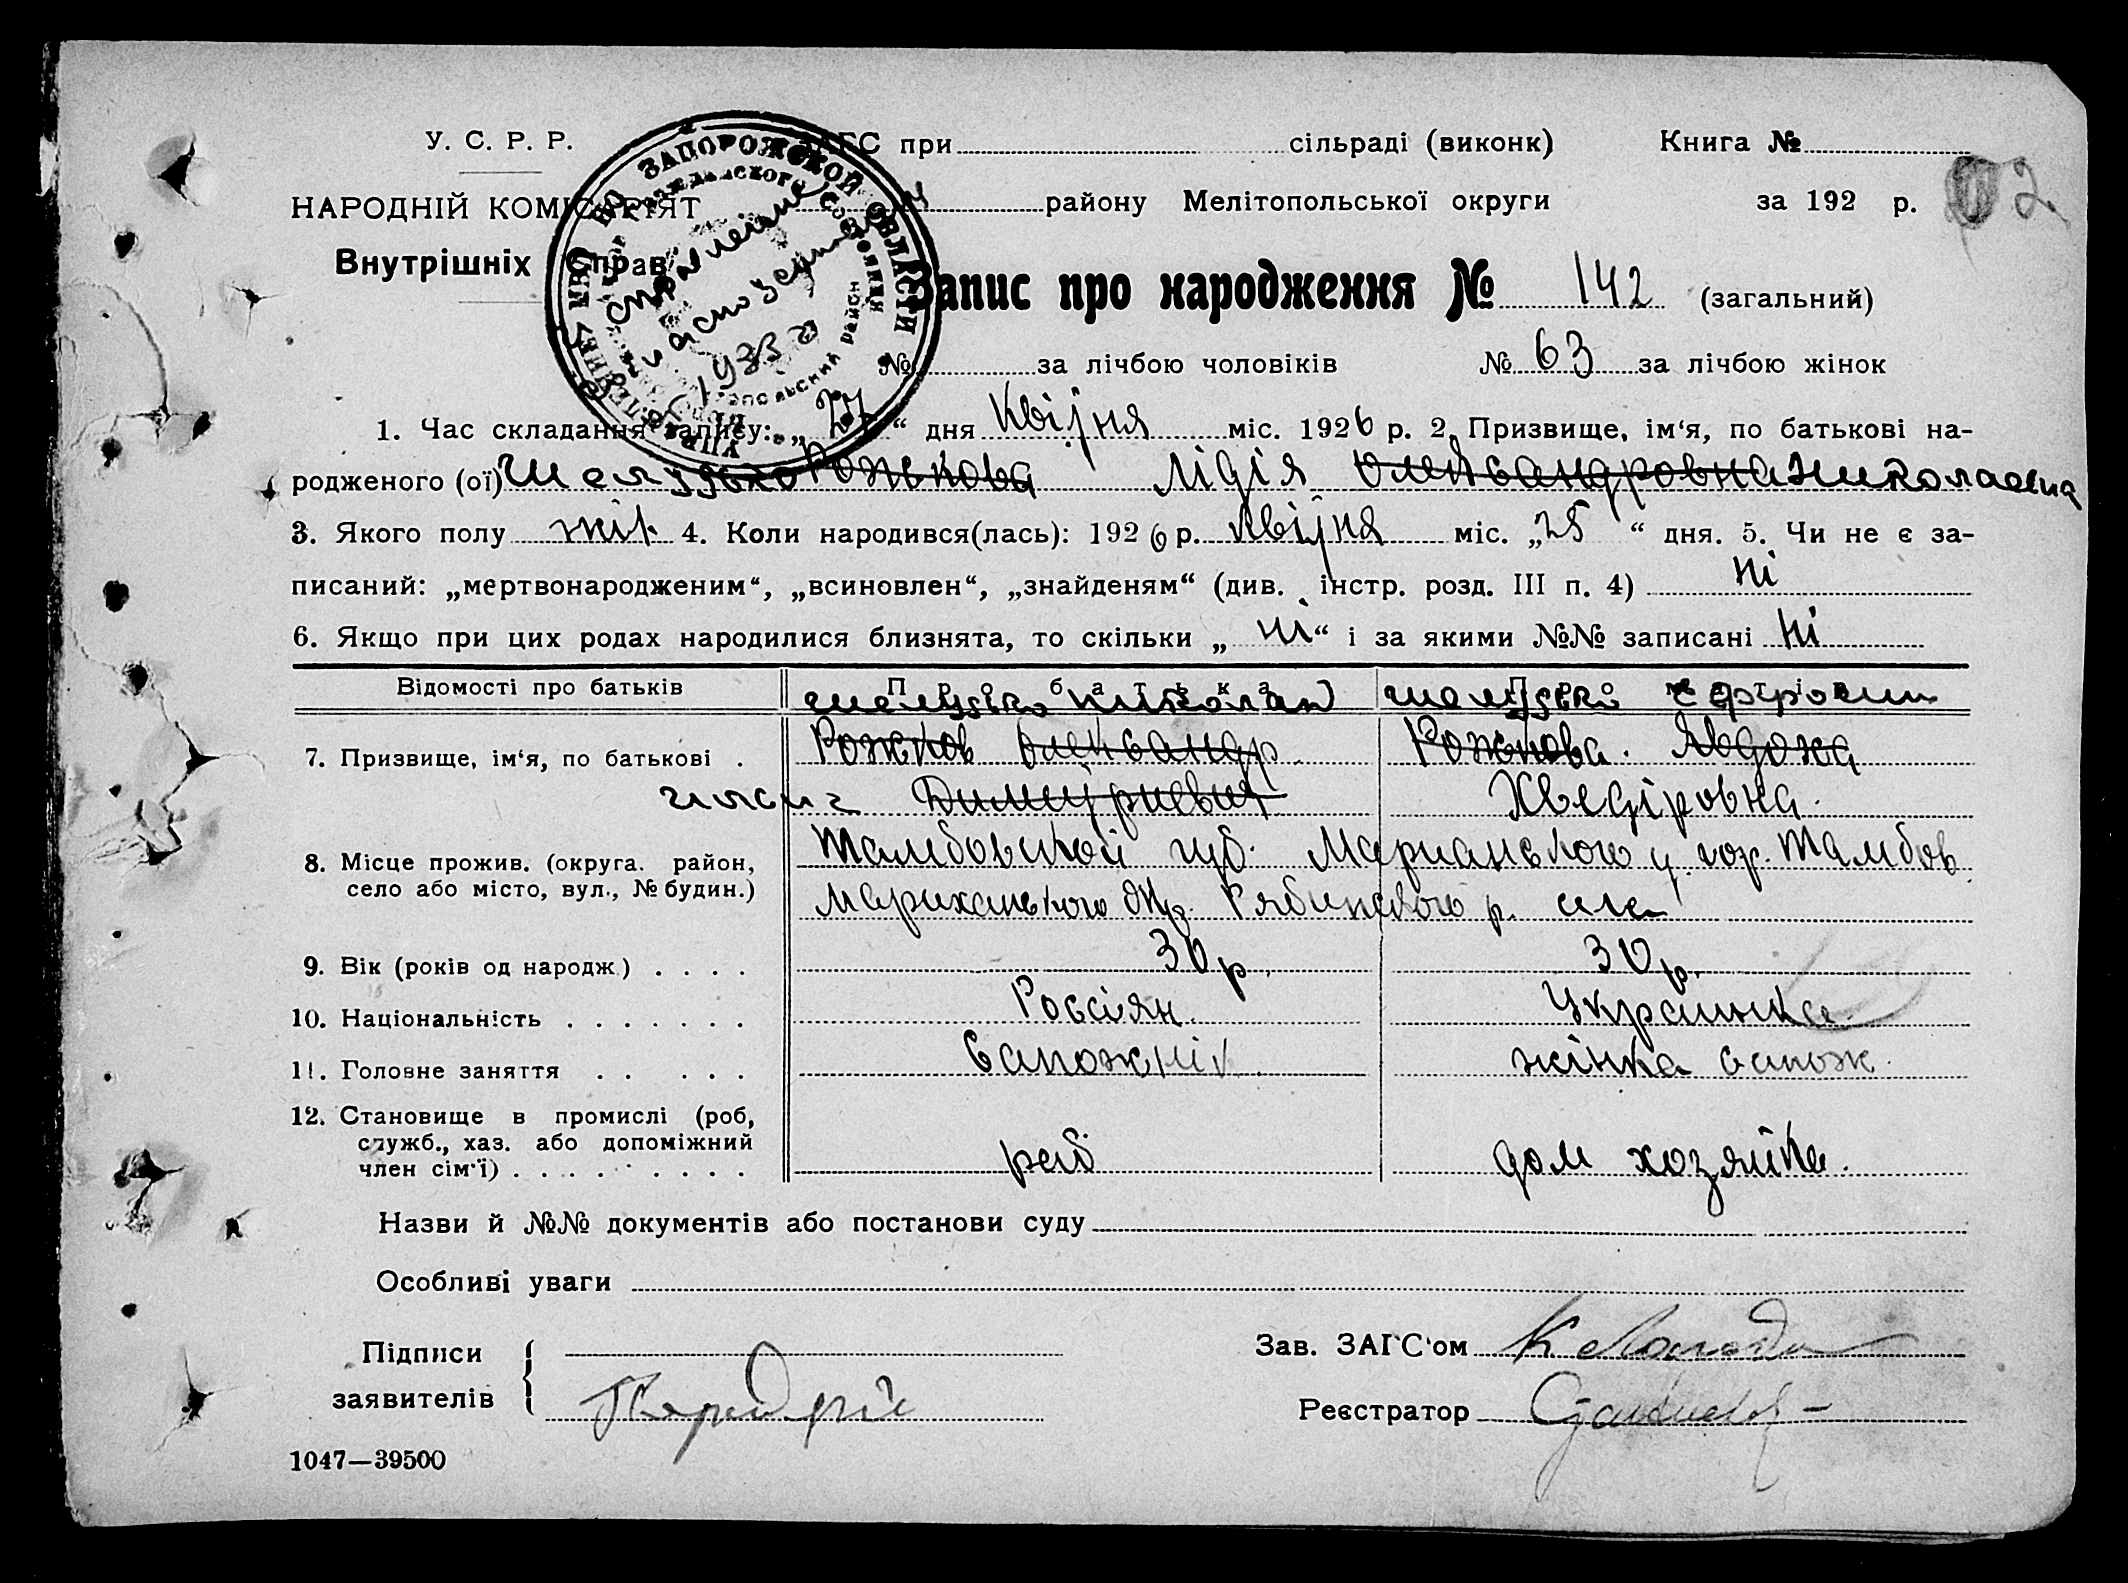 У. С. Р. Р.
ЗАГС при сільраді (виконк) Книга №
НАРОДНІЙ КОМІСАРІЯТ району Мелітопольської округи за 192 р.
Внутрішніх Справ
Запис про народження № 142 (загальний)
№ за лічбою чоловіків № 63 за лічбою жінок
УПРАВЛЕНИЕ НКВД ПО ЗАПОРОЖСКОЙ ОБЛАСТИ
гражданского состояния
район
1. Час складання запису: „ 27 “ дня Квітня міс. 1926 р. 2. Призвище, ім‘я, по батькові на-
родженого (ої) Шелудько Рожкова Лідія Олександровна Николаевна
3. Якого полу жін. 4. Коли народився(лась): 1926 р. Квітня міс. „25 “ дня. 5. Чи не є за-
писаний: „мертвонародженим“, „всиновлен“, „знайденям“ (див. інстр. розд. III п. 4) ні
6. Якщо при цих родах народилися близнята, то скільки „ ні “ і за якими №№ записані ні
Відомості про батьків Про батька Про матір
Шелудько Николай Шелудько
7. Призвище, ім‘я, по батькові . Рожков Олександр Рожкова Явдоха
Димитриевич Хведіровна
8. Місце прожив. (округа. район, Тамбовской губ. гор. Тамбов
село або місто, вул., № будин.)
9. Вік (років од народж.) . . . . 30 р. 30 р.
10. Національність . . . . . . . Россіян. Українка
11. Головне заняття . . . . . Сапожнік жінка сапож.
12. Становище в промислі (роб,
служб., хаз. або допоміжний
член сім‘ї) . . . . . . . . . раб дом хозяйка.
Назви й №№ документів або постанови суду
Особливі уваги
Підписи Зав. ЗАГС‘ом
заявителів Реєстратор
1047—39500